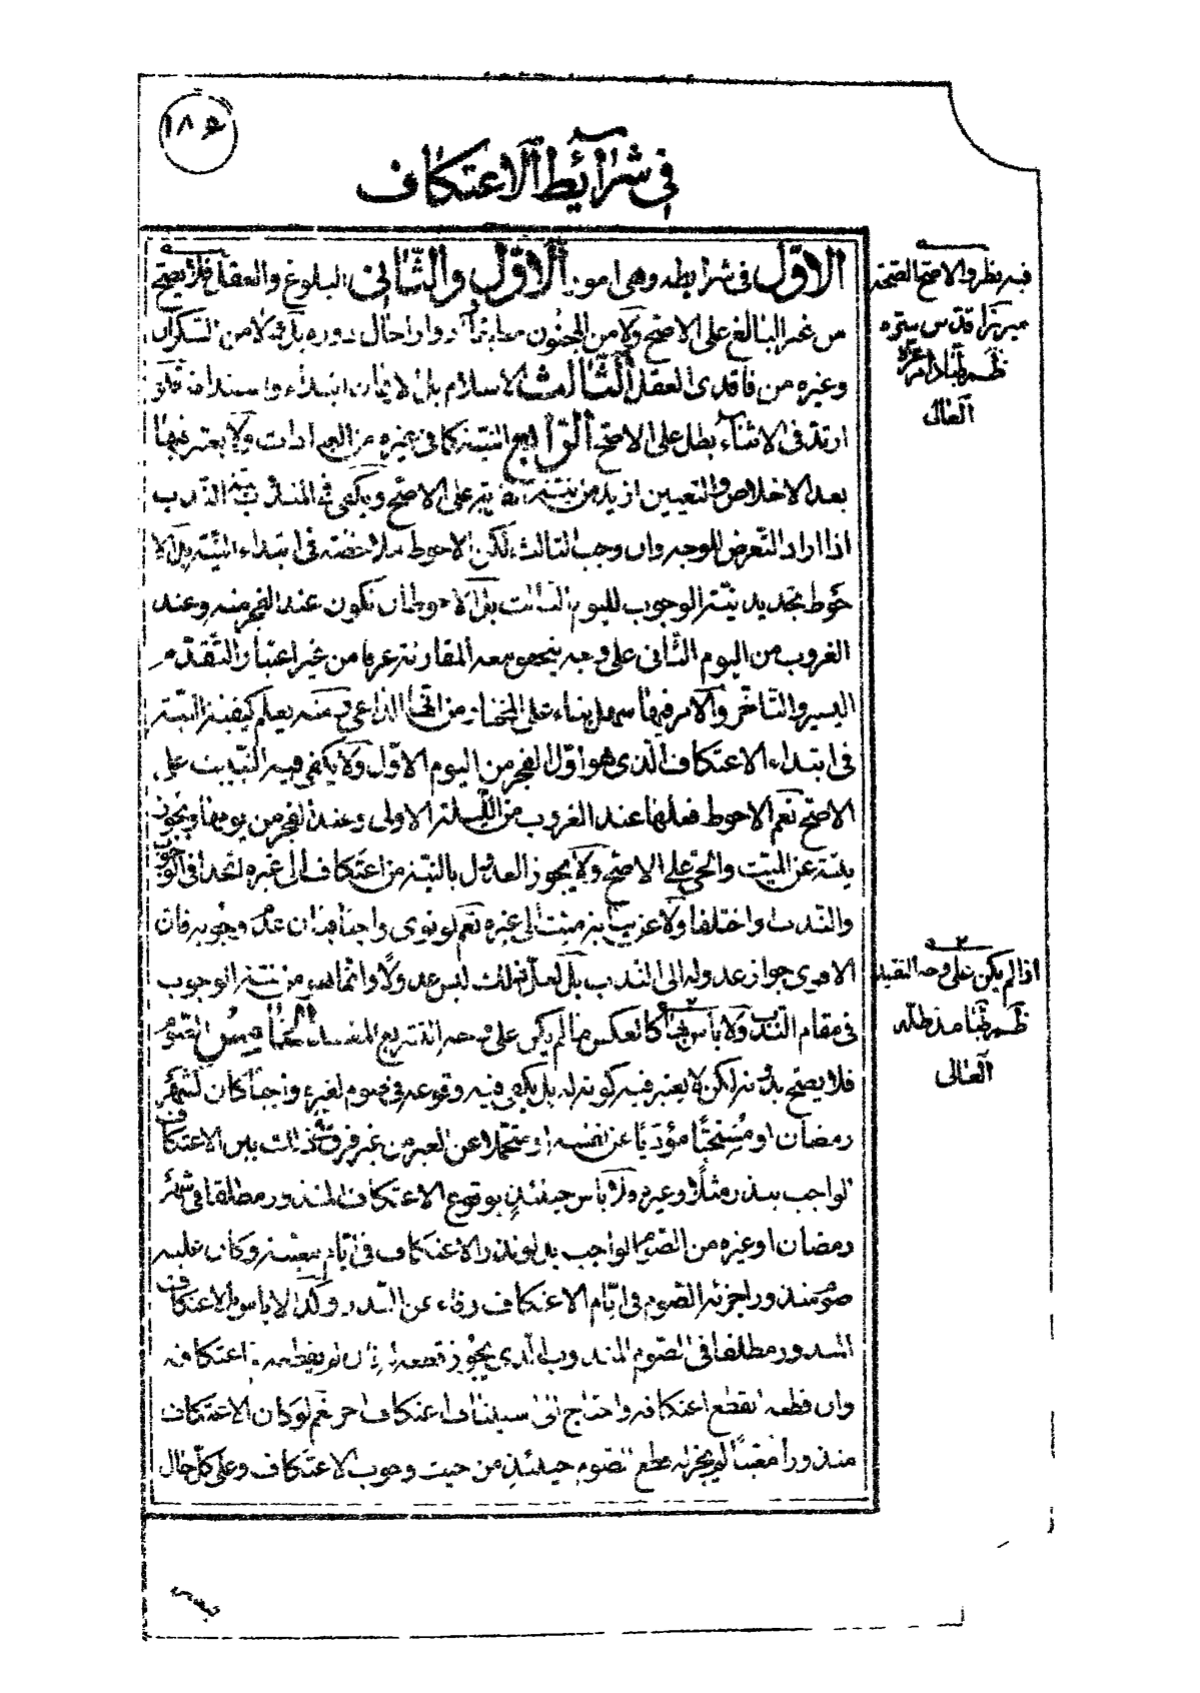 ١٨٤
في شرائط الاعتكاف
الاوّل في شرايطه وهي امور الاوّل والثّاني البلوغ والعقل فلا يصحّ
من غير البالغ على الاصحّ ولا من المجنون مطبقاً او ادواراً حال دوره بل ولا من السّكران
وغيره من فاقدى العقل الثّالث الاسلام بل الايمان ابتداء واستدامة فلو
ارتدّ في الاثناء بطل على الاصحّ الرّابع النيّة كما في غيره من العبادات ولا يعتبر فيها
بعد الاخلاص والتعيين ازيد من نيّة القربة على الاصحّ ويكفي في المندوب نيّة النّدب
اذا اراد التّعرض للوجه وان وجب الثالث لكن الاحوط ملاحظته في ابتداء النيّة بل الا
حوط تجديد نيّة الوجوب لليوم الثالث بل الاحوط ان تكون عند الفجر منه وعند
الغروب من اليوم الثّاني على وجه يتحقّق معه المقارنة عرفا من غير اعتبار التّقدّم
اليسير والتّاخّر والامر فيها سهل بناء على المختار من انّها الدّاعي ومنه يعلم كيفيّة النيّة
في ابتداء الاعتكاف الّذي هو اوّل الفجر من اليوم الاوّل ولا يكفي فيه التّبييت على
الاصحّ نعم الاحوط فعلها عند الغروب من اللّيلة الاولى وعند الفجر من يومها ويجوز
نيّته عن الميّت والحيّ على الاصحّ ولا يجوز العدول بالنيّة من اعتكاف الى غيره اتّحدا في الوجوب
والنّدب او اختلفا ولا عن نيابة ميّت الى غيره نعم لو نوى واجباً فبان عدم وجوبه فان
الاقوى جواز عدوله الى النّدب بل لعلّ ذلك ليس عدولاً وانّما هو من نيّة الوجوب
في مقام النّدب ولا باس بها كالعكس ما لم يكن على وجه التشريع المفسد الخامس الصّوم
فلا يصحّ بدونه لكن لا يعتبر فيه كونه له بل يكفي فيه وقوعه في صوم لغيره واجباً كان كشهر
رمضان او مستحبّا مؤدّياً عن نفسه او متحمّلا عن الغير من غير فرق في ذلك بين الاعتكاف
الواجب بنذر مثلاً وغيره ولا باس حينئذ بوقوع الاعتكاف المنذور مطلقا في شهر
رمضان او غيره من الصّوم الواجب بل لو نذر الاعتكاف في ايّام معيّنة وكان عليه
صوم منذور اجزئه الصّوم في ايّام الاعتكاف وفاء عن النّذر وكذا لا باس بالاعتكاف
المنذور مطلقا في الصّوم المندوب الّذي يجوز قطعه فان لم يقطعه تمّ اعتكافه
وان قطعه انقطع اعتكافه واحتاج الى استيناف اعتكاف اخر نعم لو كان الاعتكاف
منذوراً معيّناً لم يجز له قطع الصّوم حينئذ من حيث وجوب الاعتكاف وعلى كلّ حال
فيه نظر والاصحّ الصّحة
ميرزا قدّس سرّه
ظم طبا دام ظله
العالى
٢
اذا لم يكن على وجه التقييد
ظم طبا مد ظلّه
العالى